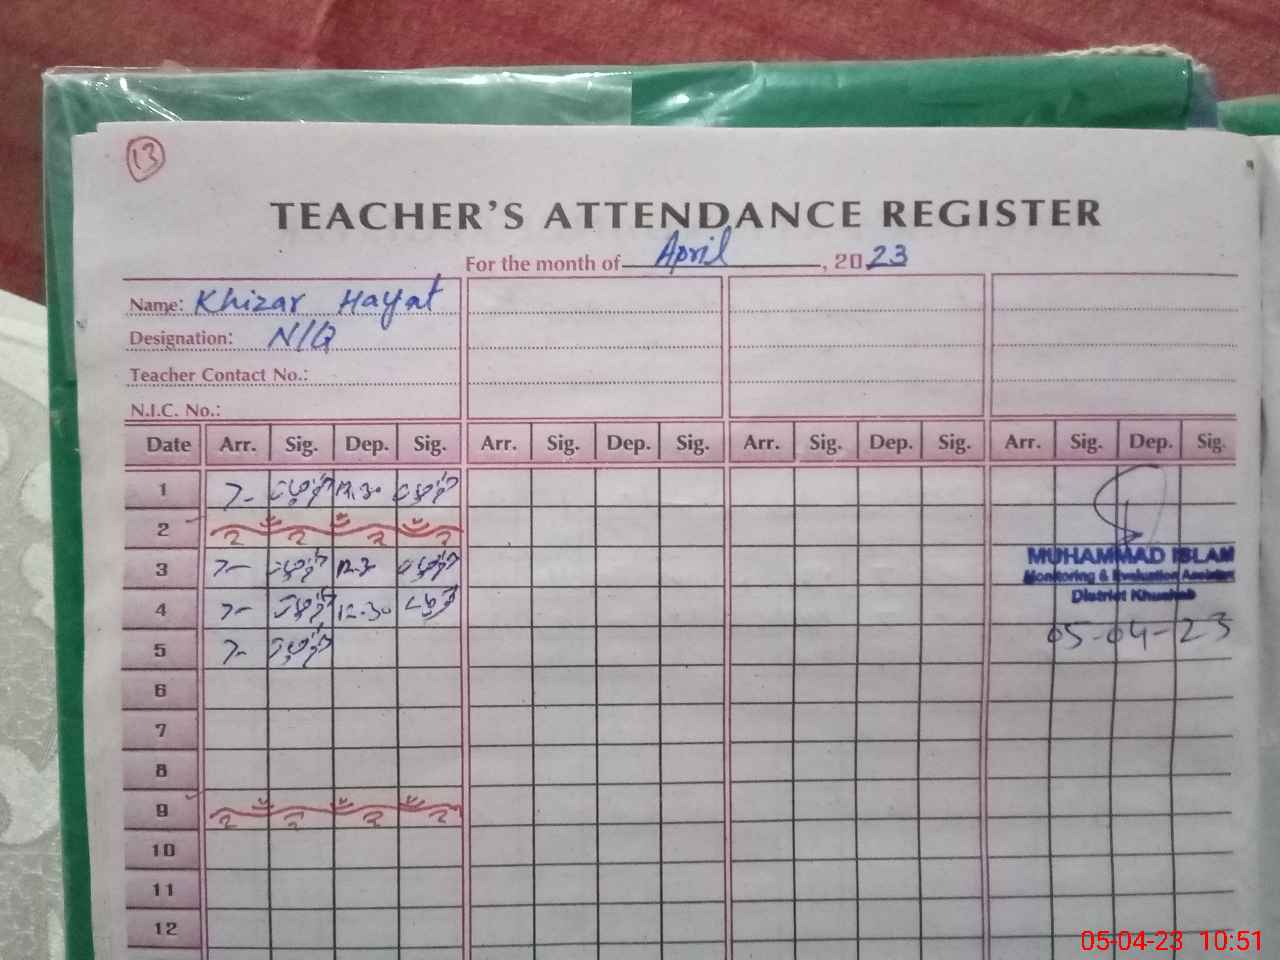 13
TEACHER'S ATTENDANCE REGISTER
For the month of April, 2023
Name: Khizar Hayat
Designation: N/Q
Teacher Contact No.:
N.I.C. No.:
Date Arr. Sig. Dep. Sig. Arr. Sig. Dep. Sig. Arr. Sig. Dep. Sig. Arr. Sig. Dep. Sig.
1 7- 12.30
2
3 7- 12.30
4 7- 12.30
5 7-
6
7
8
9
10
11
12
MUHAMMAD ISLAM
Monitoring & Evaluation Assistant
District Khushab
05-04-23
05-04-23 10:51